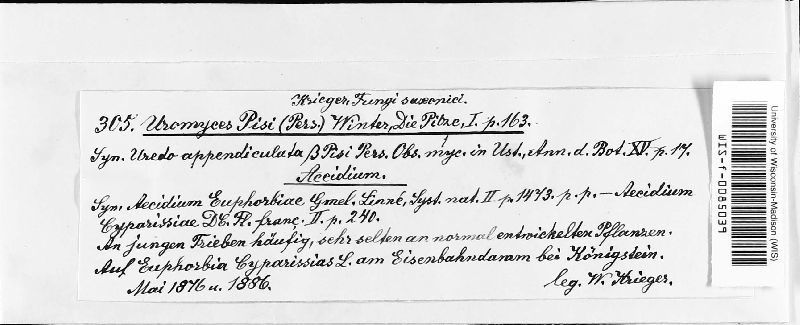 Krieger, Fungi saxonici.
305. Uromyces Pisi (Pers.) Winter, Die Pilze, I. p. 163.
Syn. Uredo appendiculata β Pisi Pers. Obs. myc. in Ust. Ann. d. Bot. XV. p. 17.
Aecidium.
Syn. Aecidium Euphorbiae Gmel. Linné, Syst. nat. II p. 1473. p. p. — Aecidium
Cyparissiae DC. Fl. franç. II. p. 240.
An jungen Trieben häufig, sehr selten an normal entwickelten Pflanzen.
Auf Euphorbia Cyparissias L. am Eisenbahndamm bei Königstein.
Mai 1876 u. 1886.
leg. W. Krieger.
University of Wisconsin-Madison (WIS)
WIS-f-0085039